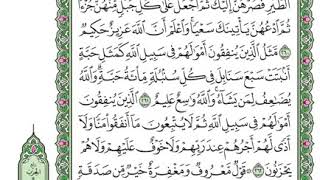 الطَّيْرِ فَصُرْهُنَّ إِلَيْكَ ثُمَّ اجْعَلْ عَلَىٰ كُلِّ جَبَلٍ مِنْهُنَّ جُزْءًا
ثُمَّ ادْعُهُنَّ يَأْتِينَكَ سَعْيًا وَاعْلَمْ أَنَّ اللَّهَ عَزِيزٌ حَكِيمٌ
٢٦٠ مَثَلُ الَّذِينَ يُنْفِقُونَ أَمْوَالَهُمْ فِي سَبِيلِ اللَّهِ كَمَثَلِ حَبَّةٍ
أَنْبَتَتْ سَبْعَ سَنَابِلَ فِي كُلِّ سُنْبُلَةٍ مِائَةُ حَبَّةٍ وَاللَّهُ
يُضَاعِفُ لِمَنْ يَشَاءُ وَاللَّهُ وَاسِعٌ عَلِيمٌ ٢٦١ الَّذِينَ يُنْفِقُونَ
أَمْوَالَهُمْ فِي سَبِيلِ اللَّهِ ثُمَّ لَا يُتْبِعُونَ مَا أَنْفَقُوا مَنًّا وَلَا
أَذًى لَهُمْ أَجْرُهُمْ عِنْدَ رَبِّهِمْ وَلَا خَوْفٌ عَلَيْهِمْ وَلَا هُمْ
يَحْزَنُونَ ٢٦٢ قَوْلٌ مَعْرُوفٌ وَمَغْفِرَةٌ خَيْرٌ مِنْ صَدَقَةٍ